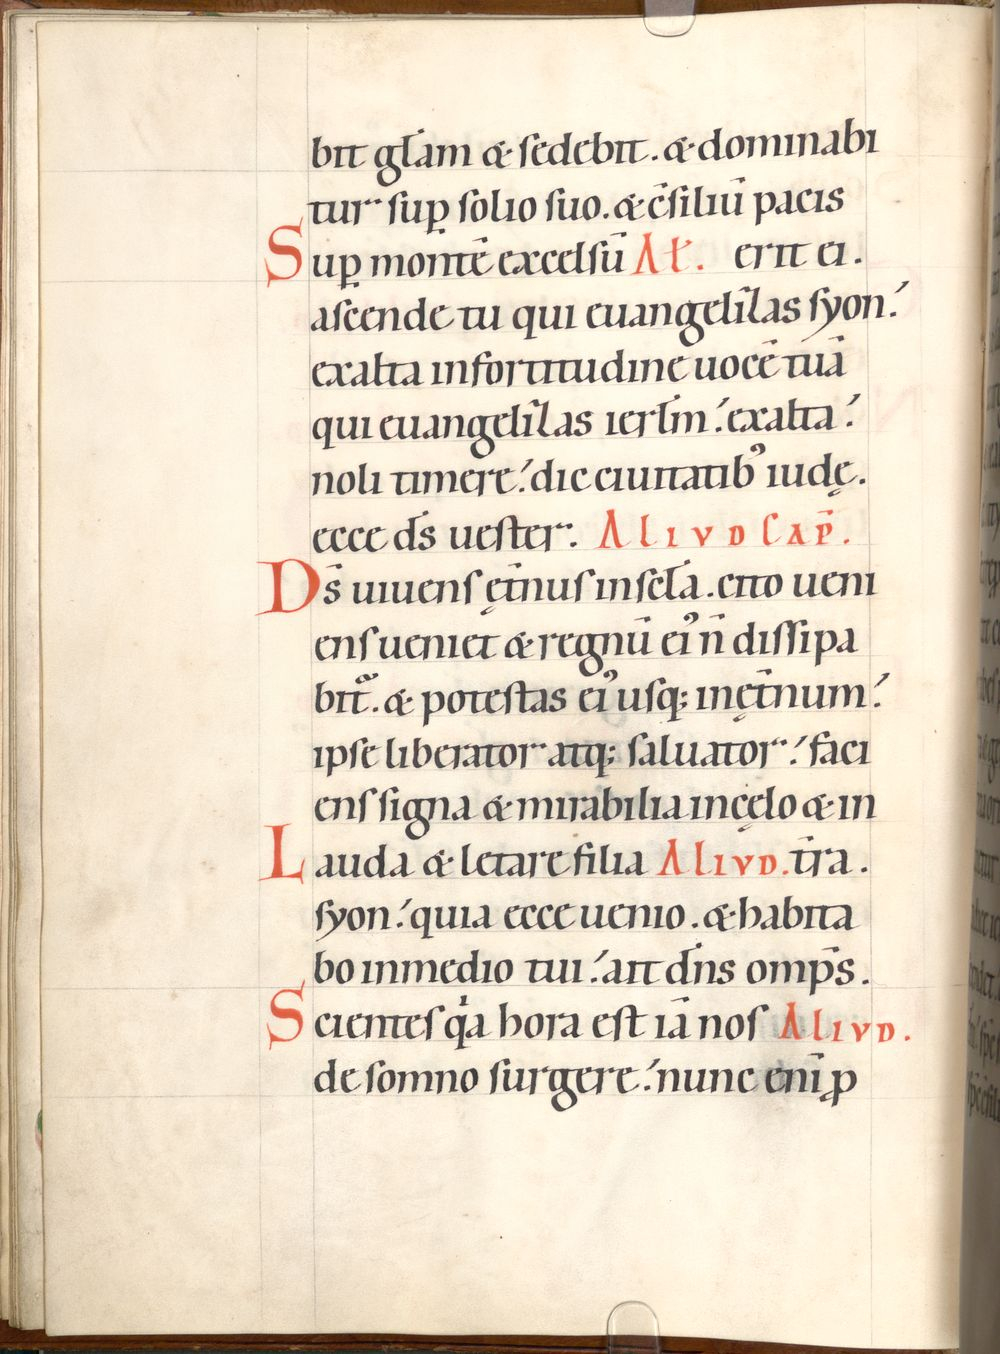 bit gl̄am & sedebit. & dominabi
tur sup̱ solio suo. & c̄siliū pacis
Sup̱ montē excelsū Al̄. erit ei.
ascende tu qui euangelizas syon!
exalta infortitudine uocē tuā
qui euangelizas ierłm! exalta!
noli timere! dic ciuitatibꝰ iudę.
ecce d̄s uester. ALIVD CAP̄.
Ds̄ uiuens ęt̄nus inscl̄a. erit o ueni
ens ueniet & regnū eiꝰ n̄ dissipa
bit᷑. & potestas eiꝰ usq; inęt̄num!
ipse liberator atq; saluator! faci
ens signa & mirabilia incęlo & in
Lauda & letare filia ALIVD. t̄ra.
syon! quia ecce uenio. & habita
bo inmedio tui! ait dn̄s omp̄s.
Scientes qͥa hora est iā nos ALIVD.
de somno surgere! nunc enī ꝓ